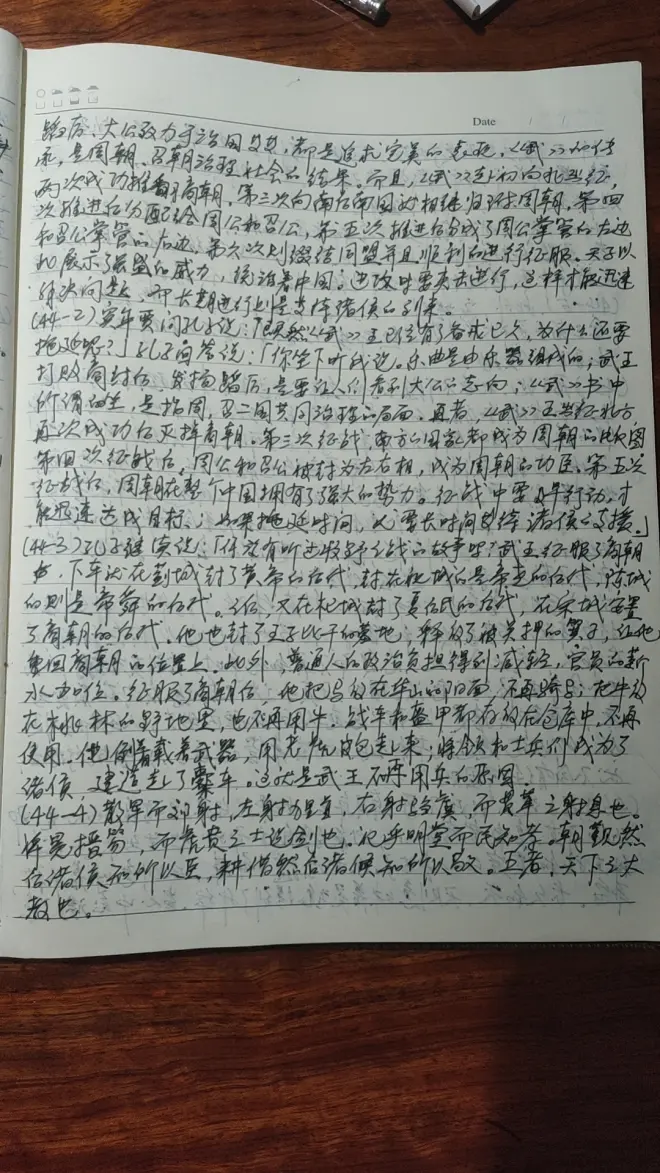 Date
蹈厉、大公致力于治国安艾,都是追求完美的表现,《武》的传
承,是周朝、召朝治理社会的结果。而且,《武》是上初向北出征,
两次成功推翻了商朝。第三次向南后南国的相继归环周朝。第四
次推进后分配给周公和召公,第五次推进后分成了周公掌管的左边
和召公掌管的右边,第六次则缀结同盟并且顺利的进行征服。天子以
和展示了强盛的威力,统治着中国。进攻时要夹击进行,这样才能迅速
解决问题,而长期进行则是支持诸侯的到来。
(44-2)宾牟贾问孔子说:「既然《武》王已经有了备戒已久,为什么还要
拖延呢?」孔子回答说:「你坐下听我说。乐曲是由乐器组成的;武王
打败商纣后,发扬蹈厉,是要让人们看到大公的志向;《武》书中
所谓的坐,是指周,召二国共同治理的局面。再者,《武》王出征北方
再次成功后灭掉商朝。第三次征战,南方的国家都成为周朝的版图
第四次征战后,周公和召公被封为左右相,成为周朝的功臣。第五次
征战后,周朝在整个中国拥有了强大的势力。征战中要及早行动,才
能迅速达成目标;如果拖延时间,必要长时间等待诸侯的支援。」
(44-3)孔子继续说:「你没有听过牧野之战的故事吗?武王征服了商朝
,下车就在蓟城封了黄帝的后代,封在祝城的是帝尧的后代,陈城
的则是帝舜的后代。之后,又在杞城封了夏后氏的后代,在宋城安置
了商朝的后代。他也封了王子比干的墓地,释放了被关押的箕子,让他
重回商朝的位置上。此外,普通人的政治负担得到减轻,官员的薪
水加倍。征服了商朝后,他把马放在华山的阳面,不再骑马;把牛放
在桃林的野地里,也不再用牛。战车和盔甲都存放在仓库中,不再
使用。他倒着载着武器,用老虎皮包起来;将领和士兵们成为了
诸侯,建造起了櫜车。这就是武王不再用兵的原因
(44-4)散军而郊射,左射狸首,右射驺虞,而贯革之射息也。
裨冕搢笏,而虎贲之士说剑也。祀乎明堂而民知孝。朝觐然
后诸侯知所以臣,耕借然后诸侯知所以敬。五者,天下之大
教也。